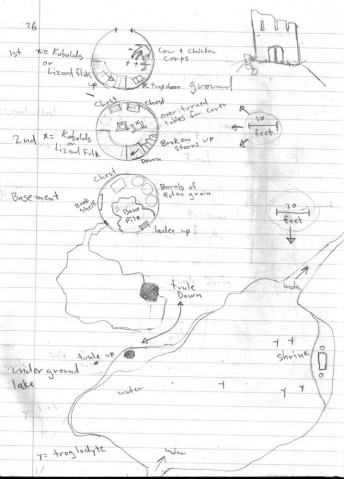 26
1st x = Kobolds
or
Lizard Folks
Cow + Chicken
Corps
up
Trapdoor ground
Chest Chest
over turned
tables for cover
10
feet
2nd x = Kobolds
or
Lizard Folk
Broken
stairs up
Down
Chest
Basement
Barols of
Roten grain
Book
shelf
Bone
Pile
lader up
20
feet
tunle
Down
water
tunle up
Under ground
lake
water
shrine
y = troglodyte
water